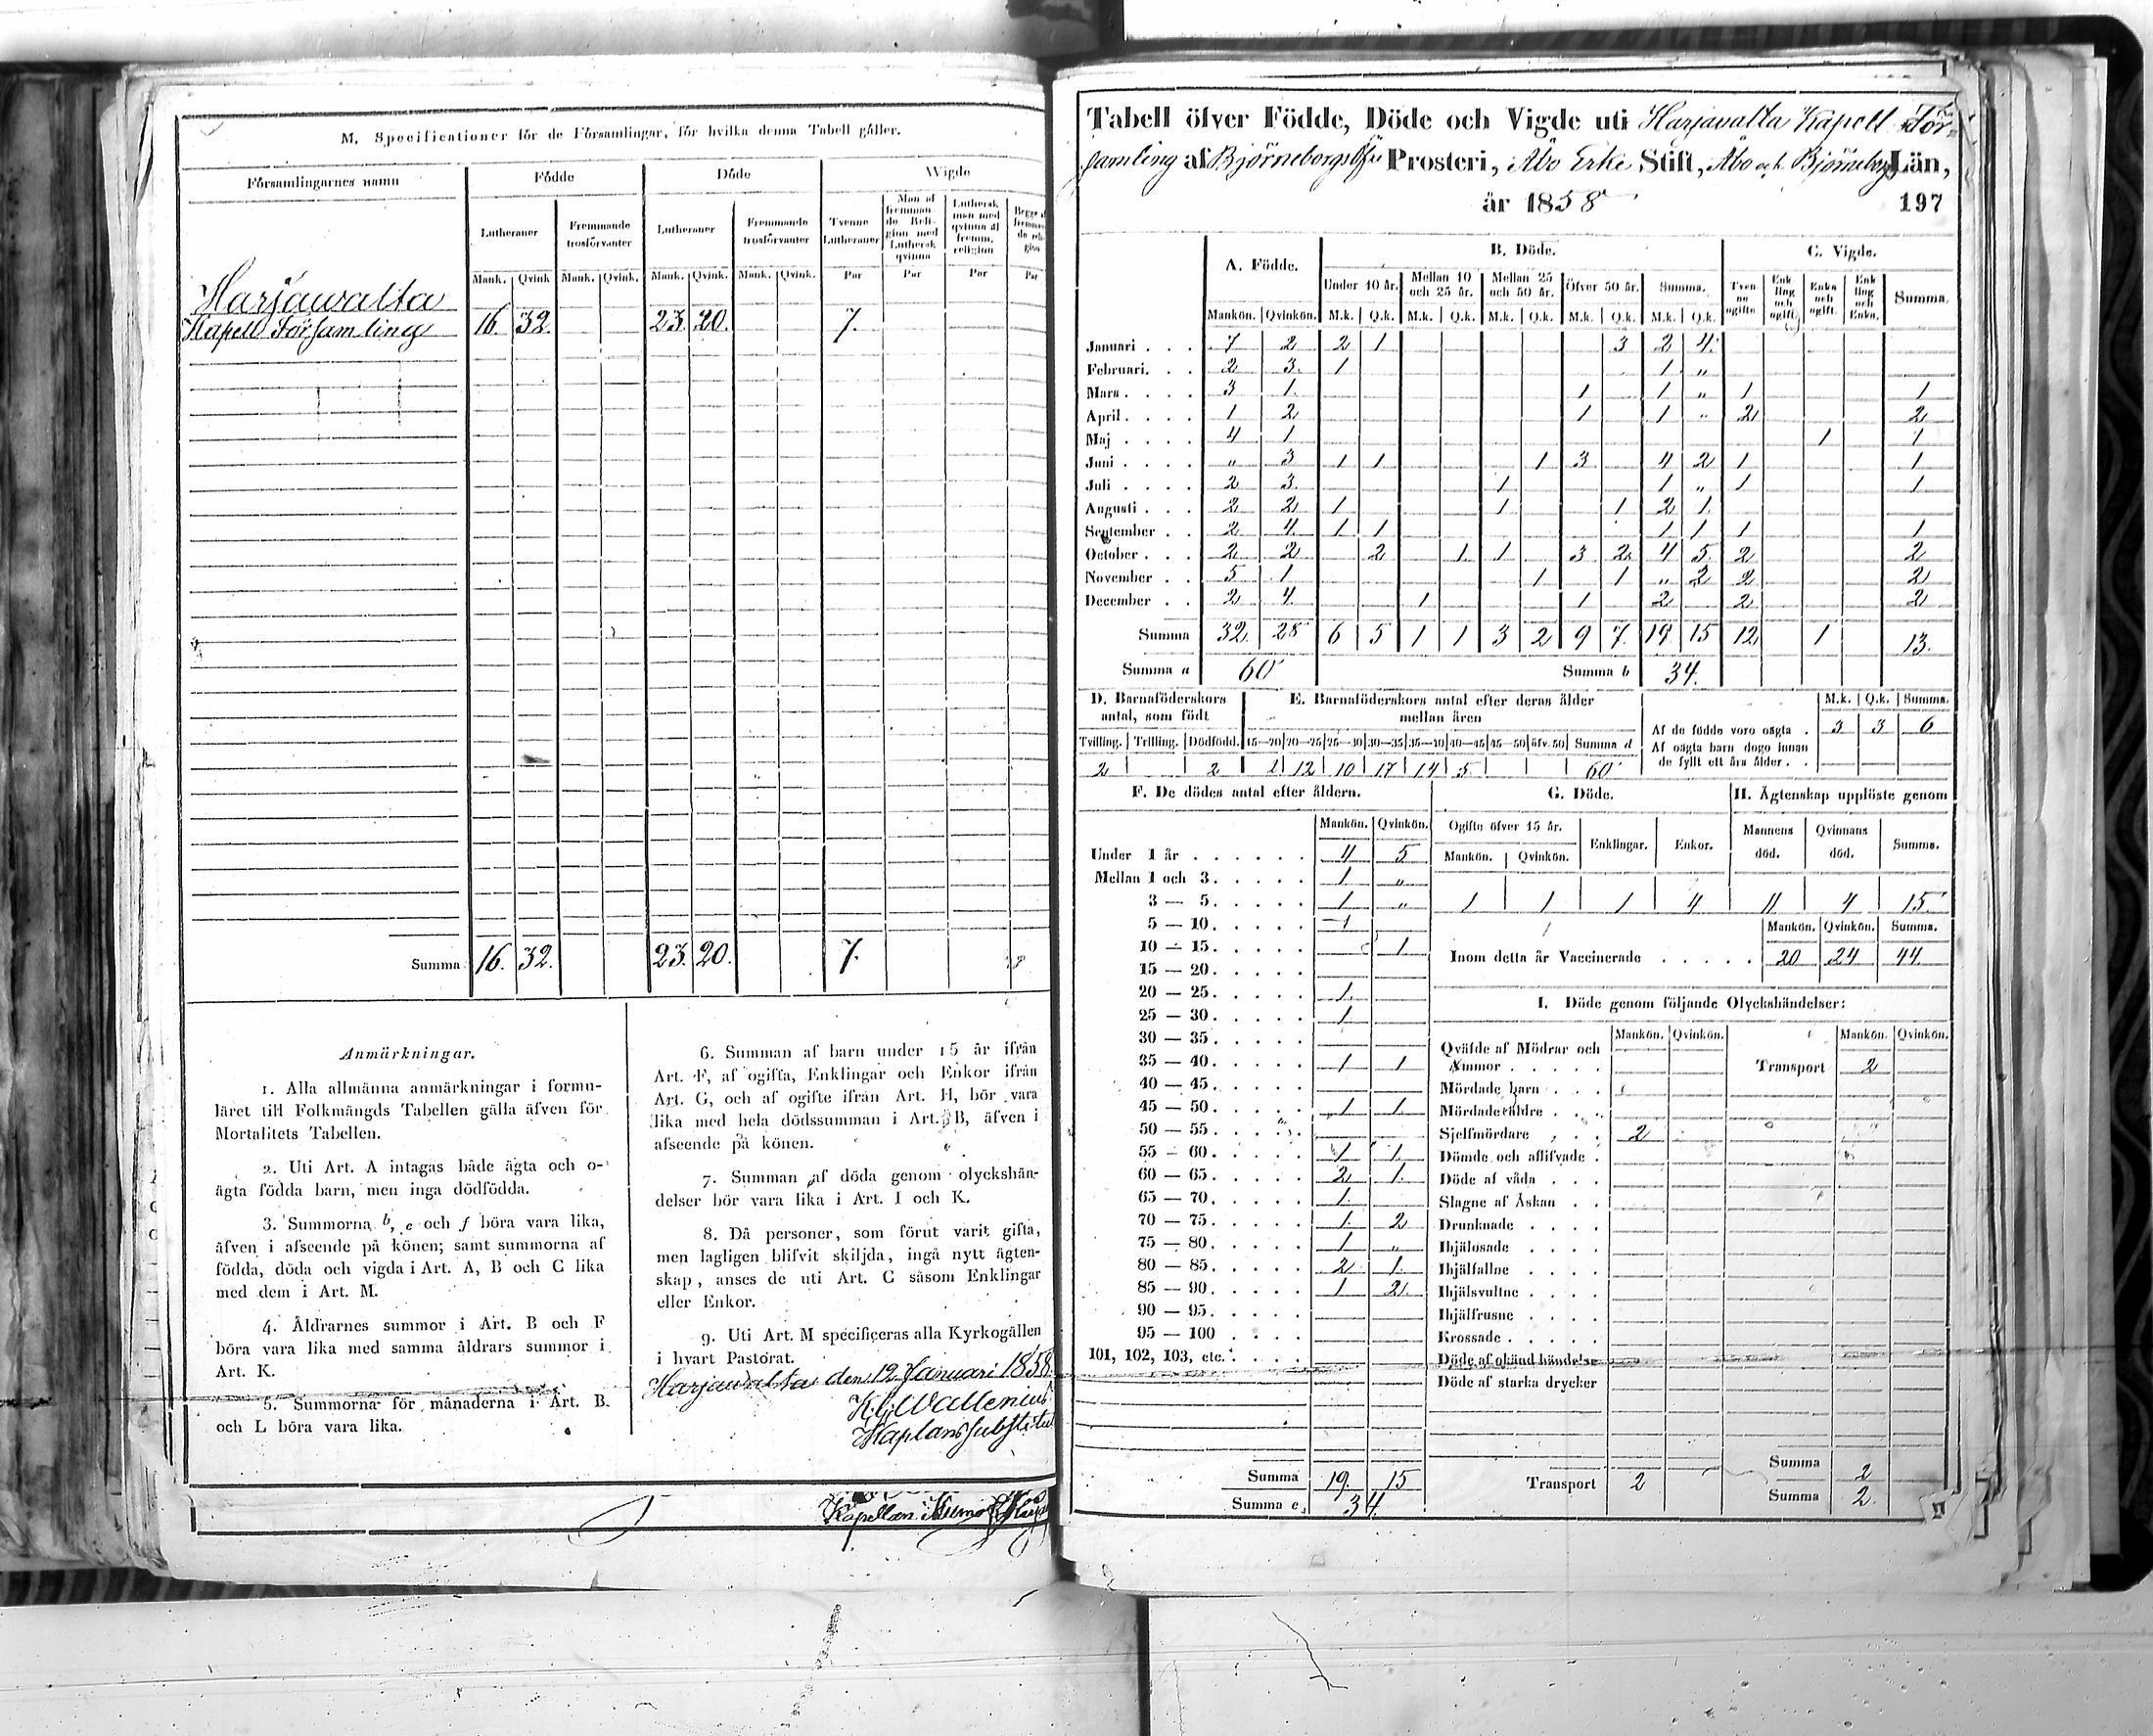 M. Specificationer för de Församlingar, för hvilka denna Tabell gäller.
Församlingarnes namn | Födde | Döde | Wigde
Lutheraner | Fremmande trosförvanter | Lutheraner | Fremmande trosförvanter | Tvenne Lutheraner | Man af fremmande Religion med Luthersk qvinna | Luthersk man med qvinna af fremm. religion
Mank. | Qvink | Mank. | Qvink. | Mank. | Qvink. | Mank. | Qvink. | Par | Par | Par | Par
Harjawalta
Kapell Församling 16 32 23. 20. 7.
Summa 16. 32. 23. 20. 7.
Anmärkningar.
1. Alla allmänna anmärkningar i formu-
läret till Folkmängds Tabellen gälla äfven för
Mortalitets Tabellen.
2. Uti Art. A intagas både ägta och o-
ägta födda barn, men inga dödfödda.
3. Summorna b, e och f böra vara lika,
äfven i afseende på könen; samt summorna af
födda, döda och vigda i Art. A, B och C lika
med dem i Art. M.
4. Åldrarnes summor i Art. B och F
böra vara lika med samma åldrars summor i
Art. K.
5. Summorna för månaderna i Art. B.
och L böra vara lika.
6. Summan af barn under 15 år ifrån
Art. F, af ogifta, Enklingar och Enkor ifrån
Art. G, och af ogifte ifrån Art. H, bör vara
lika med hela dödssumman i Art. B, äfven i
afseende på könen.
7. Summan af döda genom olyckshän-
delser bör vara lika i Art. I och K.
8. Då personer, som förut varit gifta,
men lagligen blifvit skiljda, ingå nytt ägten-
skap, anses de uti Art. C såsom Enklingar
eller Enkor.
9. Uti Art. M specificeras alla Kyrkogällen
i hvart Pastorat.
Harjawalta den 12 Januari 1858.
Wallenius
Kaplans Substitut
Kapellan i Kumo
Tabell öfver Födde, Döde och Vigde uti Harjavalta Kapell För-
samling af Björneborgs Prosteri, Åbo Erke Stift, Åbo och Björneborgs Län,
år 1858 197
A. Födde. | B. Döde. | C. Vigde.
Under 10 år. | Mellan 10 och 25 år. | Mellan 25 och 50 år. | Öfver 50 år. | Summa. | Tvenne ogifte | Enkling och ogift. | Enka och ogift. | Enkling och Enka. | Summa.
Mankön. | Qvinkön. | M.k. | Q.k. | M.k. | Q.k. | M.k. | Q.k. | M.k. | Q.k. | M.k. | Q.k.
Januari . . . 7 2 2 1 3 2 4.
Februari. . . 2 3. 1 1 „
Mars . . . . 3 1. 1 1 „ 1 1
April . . . . 1 2 1 1 „ 2 2
Maj . . . . 4 1 1 1
Juni . . . . „ 3 1 1 1 3 4 2 1 1
Juli . . . . 2 3. 1 1 „ 1 1
Augusti . . . 2 2 1 1 1 2 1.
September . . 2 4. 1 1 1 1 1 1
October . . . 2 2 2 1 1 3 2 4 5. 2 2
November . . 5 1 1 1 „ 2 2 2
December . . 2 4. 1 1 2 2 2
Summa 32. 28 6 5 1 1 3 2 9 7. 19 15 12 1 13.
Summa a 60 Summa b 34.
D. Barnaföderskors antal, som födt | E. Barnaföderskors antal efter deras ålder mellan åren | M.k. | Q.k. | Summa.
Af de födde voro oägta . 3 3 6
Af oägta barn dogo innan
de fyllt ett års ålder . .
Tvilling. | Trilling. | Dödfödd. | 15—20 | 20—25 | 25—30 | 30—35 | 35—40 | 40—45 | 45—50 | öfv. 50 | Summa d
2 2 2 12 10 17 14 5 60
F. De dödes antal efter åldern. | G. Döde. | H. Ägtenskap upplöste genom
Mankön. | Qvinkön.
Under 1 år . . . . . . 4 5
Mellan 1 och 3. . . . . 1 „
3 — 5. . . . . 1 „
5 — 10. . . . . 1
10 — 15. . . . . 1.
15 — 20. . . . .
20 — 25. . . . . 1.
25 — 30. . . . . 1
30 — 35. . . . .
35 — 40. . . . . 1 1
40 — 45. . . . .
45 — 50. . . . . 1 1
50 — 55. . . . .
55 — 60. . . . . 1 1.
60 — 65. . . . . 2 1.
65 — 70. . . . . 1.
70 — 75. . . . . 1. 2
75 — 80. . . . . 1 „
80 — 85. . . . . 2 1.
85 — 90. . . . . 1 2.
90 — 95. . . . .
95 — 100 . . . .
101, 102, 103, etc. . . . .
Summa 19. 15
Summa e. 34.
Ogifte öfver 15 år. | Enklingar. | Enkor. | Mannens död. | Qvinnans död. | Summa.
Mankön. | Qvinkön.
1 1 1 4 11 4 15
Mankön. | Qvinkön. | Summa.
Inom detta år Vaccinerade . . . . . 20 24 44.
I. Döde genom följande Olyckshändelser:
Mankön. | Qvinkön. | Mankön. | Qvinkön.
Qväfde af Mödrar och
Ammor . . . . . Transport 2
Mördade barn . . .
Mördade äldre . . .
Sjelfmördare . . . 2
Dömde och aflifvade .
Döde af våda . . .
Slagne af Åskan . .
Drunknade . . . .
Ihjälosade . . . .
Ihjälfallne . . . .
Ihjälsvultne . . . .
Ihjälfrusne . . . .
Krossade . . . . .
Döde af okänd händelse
Döde af starka drycker
Transport 2
Summa 2
Summa 2.